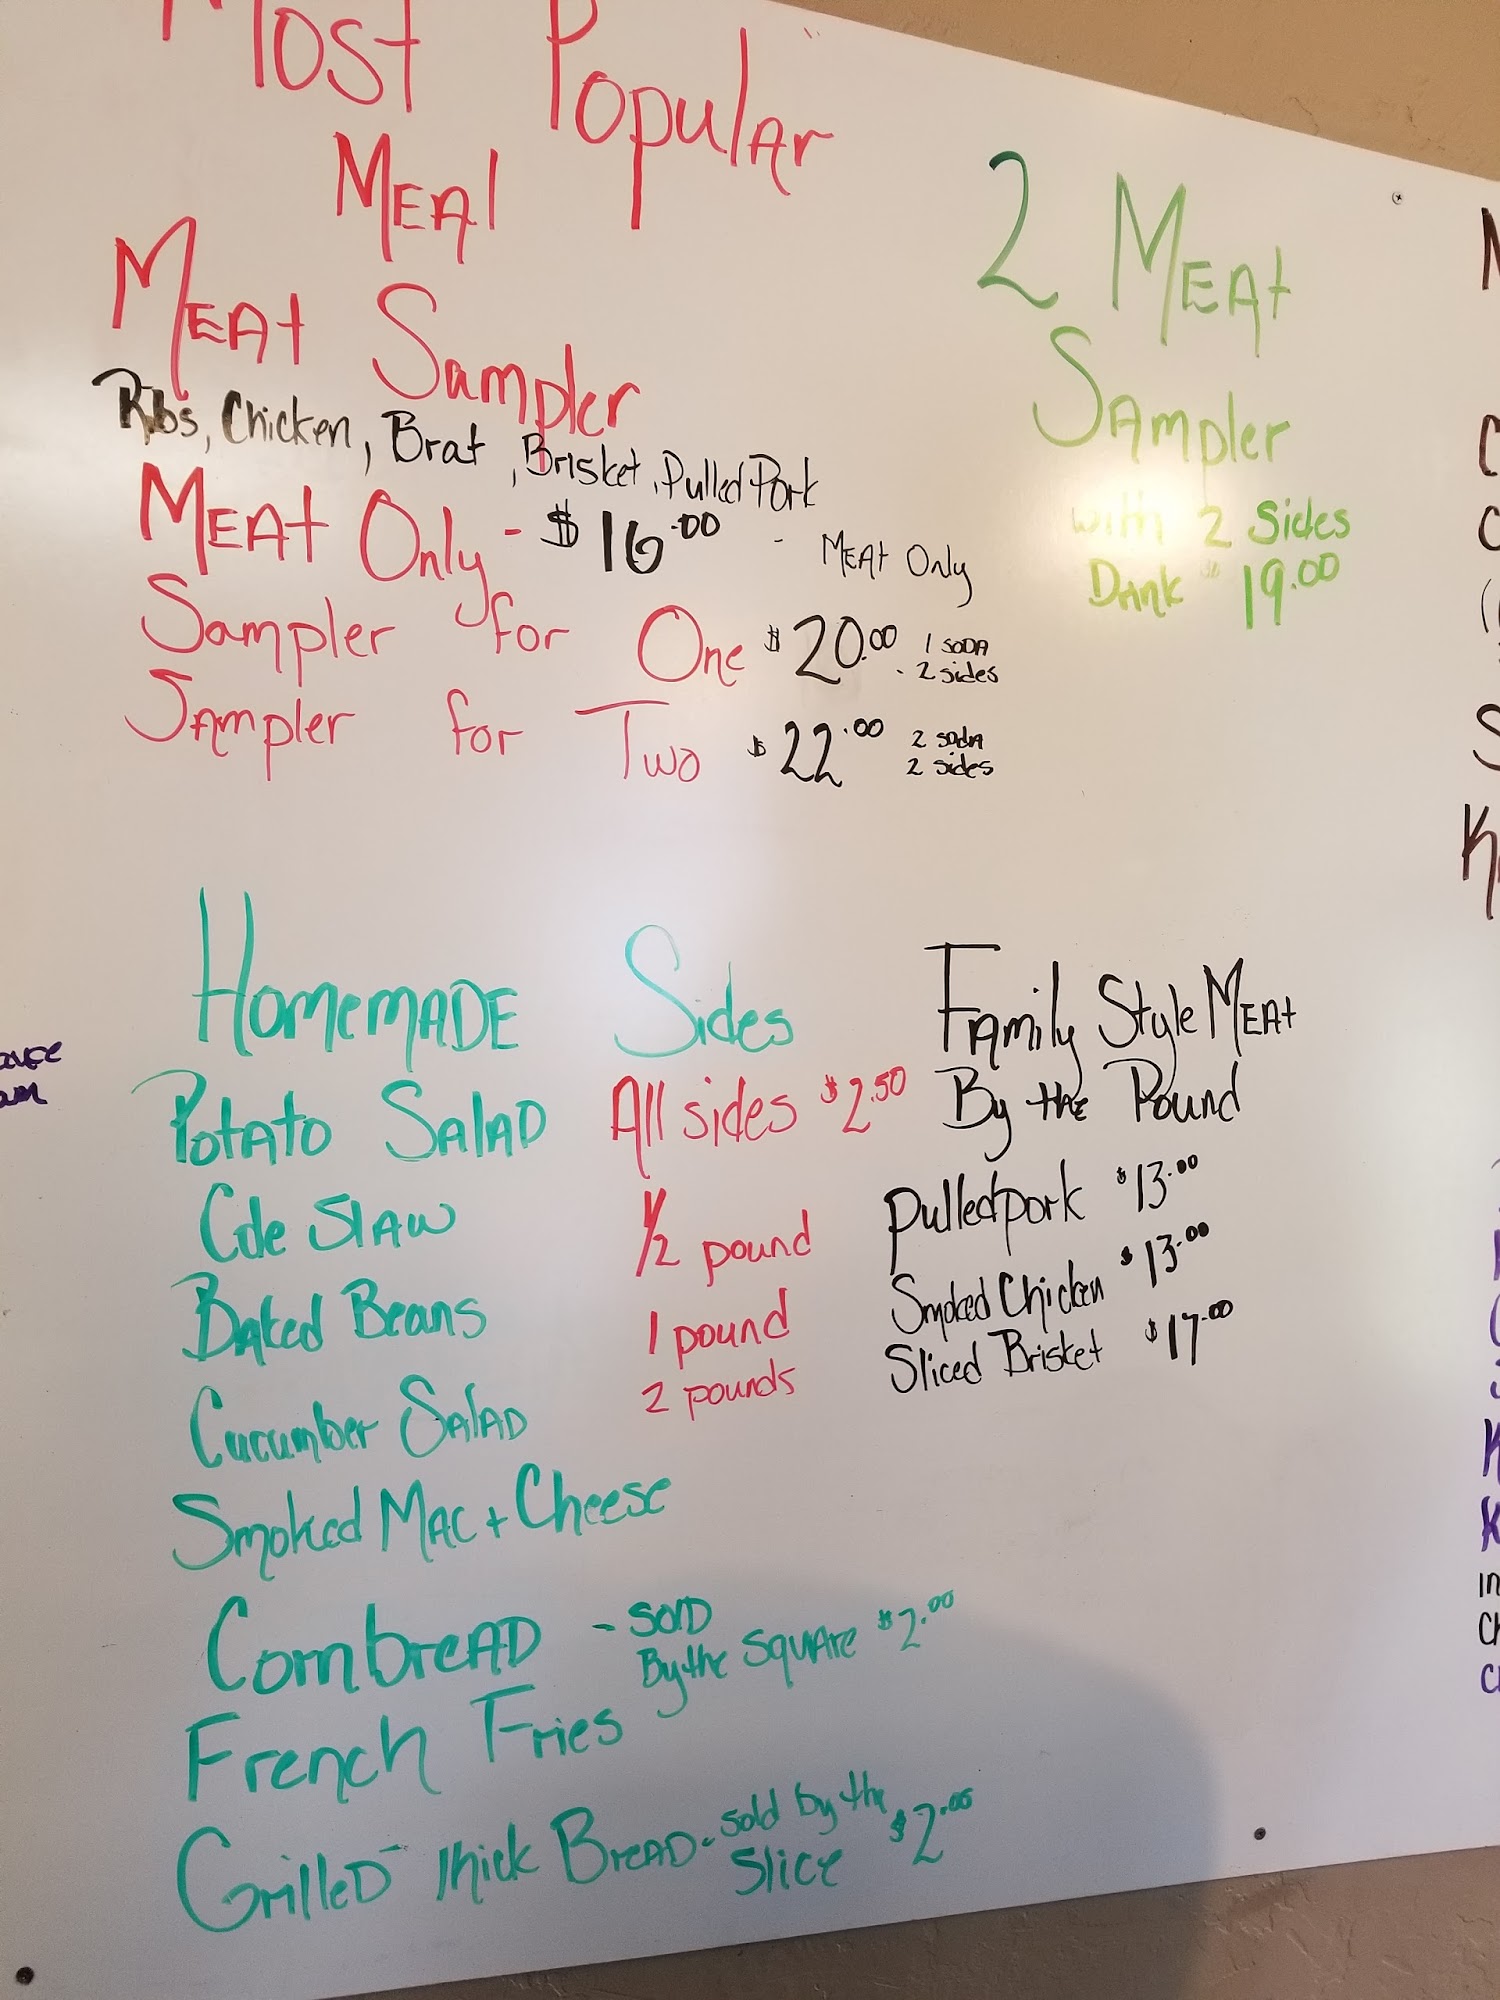 Most Popular
Meal
Meat Sampler
Ribs, Chicken, Brat, Brisket, Pulled Pork
Meat Only - $16.00 - Meat Only
Sampler for One $20.00 1 soda
- 2 sides
Sampler for Two $22.00 2 soda
2 sides
2 Meat
Sampler
with 2 Sides
Drnk $19.00
Homemade Sides
Potato Salad
Cole Slaw
Baked Beans
Cucumber Salad
Smoked Mac + Cheese
Cornbread - sold
By the square $2.00
French Fries
Grilled thick Bread - sold by the
slice $2.00
All sides $2.50
1/2 pound
1 pound
2 pounds
Family Style Meat
By the Pound
Pulledpork $13.00
Smoked Chicken $13.00
Sliced Brisket $17.00